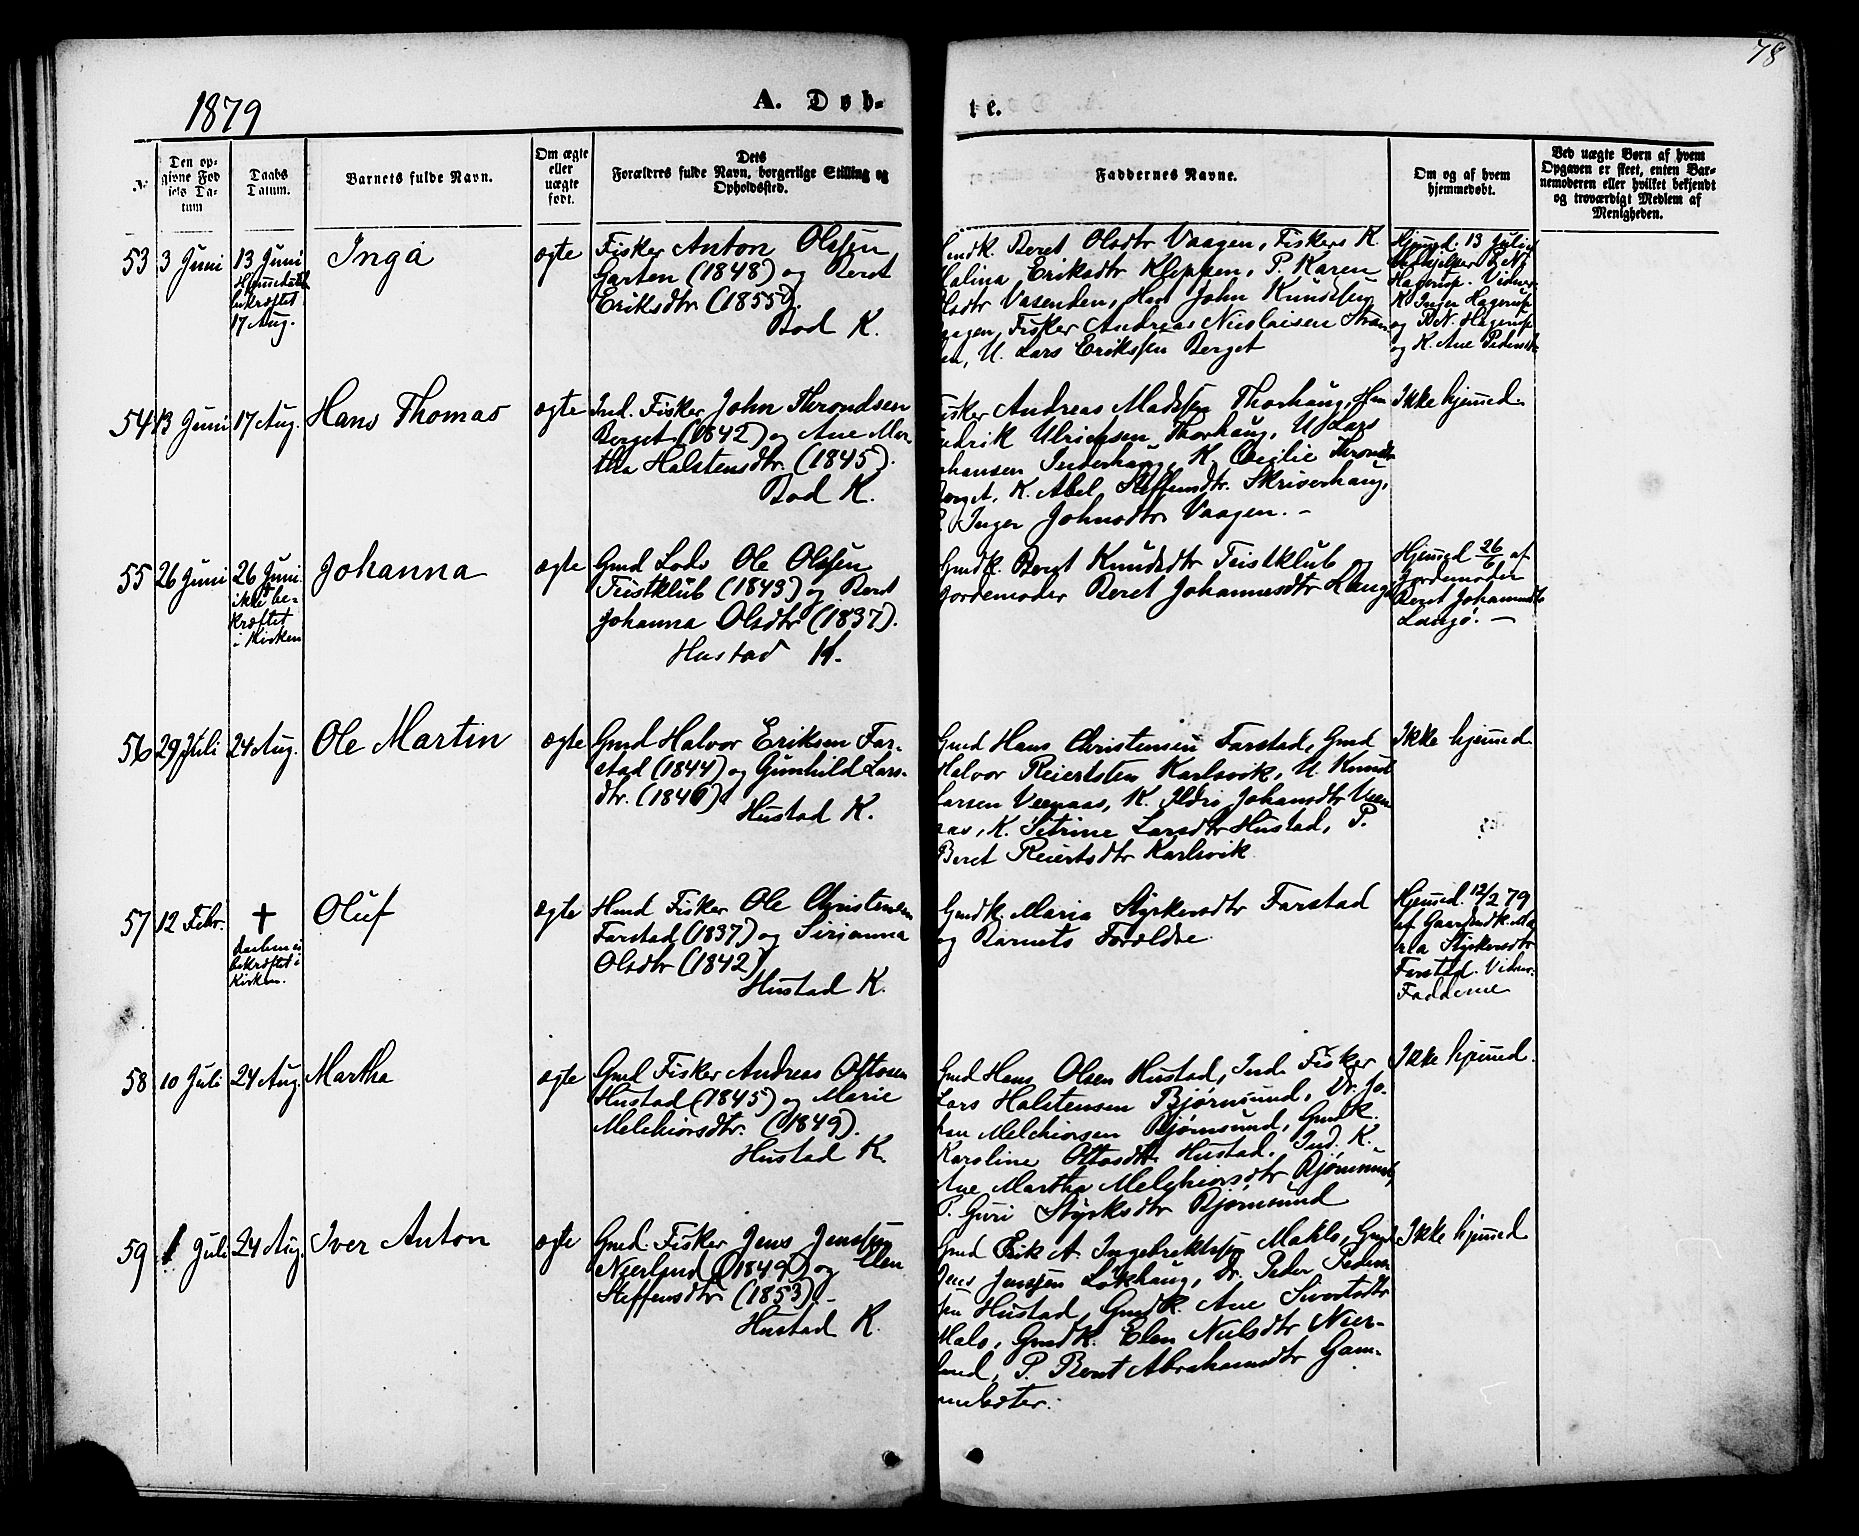 78
1879
A. Døb-
te.
No
Den op-
givne Fød
sels Da-
tum
Daabs
Datum.
Barnets fulde Navn.
Om ægte
eller
uægte
født.
Dets
Forældres fulde Navn, borgerlige Stilling og
Opholdssted.
Faddernes Navne.
Om og af hvem
hjemmedøbt.
Ved uægte Børn af hvem
Opgaven er skeet, enten Bar-
nemoderen eller hvilket bekjendt
og troværdigt Medlem af
Menigheden.
53
3 Juni
13 Juni
bekræftet
17 Aug.
Inga
ægte
Fisker Anton Olssen
Garten (1848) og Beret
Eriksdtr (1855).
Bod K.
Gmdk. Beret Olsdtr Vaagen, Fiskers K
Malina Eriksdtr Kleppen, P. Karen
Olsdtr Vasenden, John Knudssen
Vaagen, Fisker Andreas Nicolaisen Stran
den, U. Lars Erikssen Berget
Hjemmed. 13 Juni
Hagerup. Vidner
K. Inger Hagerup
og P. N. Hagerup
og K. Ane Pedersdtr
54
13 Juni
17 Aug.
Hans Thomas
ægte
Ind. Fisker John Throndsen
Berget (1842) og Ane Mar-
tha Halstensdtr. (1845).
Bod K.
Fisker Andreas Madssen Thorhaug, Hen
drik Ulrichsen Thorhaug, U. Lars
Johansen Inderhaug, K. Cecilie Thronds
Berget, K. Abel Steffensdtr. Skriverhaug,
P. Inger Johnsdtr Vaagen. -
Ikke hjemmed.
55
26 Juni
26 Juni
ikke be-
kræftet
i Kirken
Johanna
ægte
Gmd Lods Ole Olssen
Teistklub (1843) og Beret
Johanna Olsdtr (1837).
Hustad K.
Gmdk. Beret Knudsdtr Teistklub og
Jordemoder Beret Johannesdtr Langø
Hjemmed 26/6 af
Jordemoder
Beret Johannesdtr
Langø. -
56
29 Juli
24 Aug.
Ole Martin
ægte
Gmd Halvor Eriksen Far-
stad (1844) og Gunhild Lars-
dtr. (1846)
Hustad K.
Gmd Hans Christensen Farstad, Gmd
Halvor Reiertsten Karlsvik, U. Knud
Larsen Veenaas, K. Ildri Johansdtr Veen
aas, K. Sitrine Larsdtr Hustad, P.
Beret Reiertsdtr Karlsvik
Ikke hjemmed.
57
12 Febr.
✝
Daaben ei
bekræftet i
Kirken.
Oluf
ægte
Hmd Fisker Ole Christensen
Farstad (1837) og Serianna
Olsdtr (1842)
Hustad K.
Gmdk. Maria Styrkersdtr Farstad
og Barnets Forældre
Hjemmed. 12/2 79
af Gaardmdk. Ma
ria Styrkersdtr
Farstad. Vidner
Fadderne
58
10 Juli
24 Aug.
Martha
ægte
Gmd Fisker Andreas Ottosen
Hustad (1845) og Marie
Melchiorsdtr. (1849).
Hustad K.
Gmd Hans Olsen Hustad, Ind. Fisker
Lars Halstensen Bjørnsund, Dr. Jo-
han Melchiorsen Bjørnsund, Gmdk.
Karoline Ottosdtr Hustad, Ind. K.
Ane Martha Melchiorsdtr Bjørnsund,
P. Guri Styrksdtr Bjørnsund
Ikke hjemmed.
59
1 Juli
24 Aug.
Iver Anton
ægte
Gmd. Fisker Jens Jenssen
Nierlund (1849) og Elen
Steffensdtr (1853). -
Hustad K.
Gmd Erik A. Ingebrektssen Mahls, Gmd
Jens Jenssen Løkhaug, Dr. Peder Peder
sen Hustad, Gmdk. Ane Sivertsdtr
Mals, Gmdk. Elen Nielsdtr Nier-
lund, P. Beret Abrahamsdtr Gam-
melsæter.
Ikke hjemmed